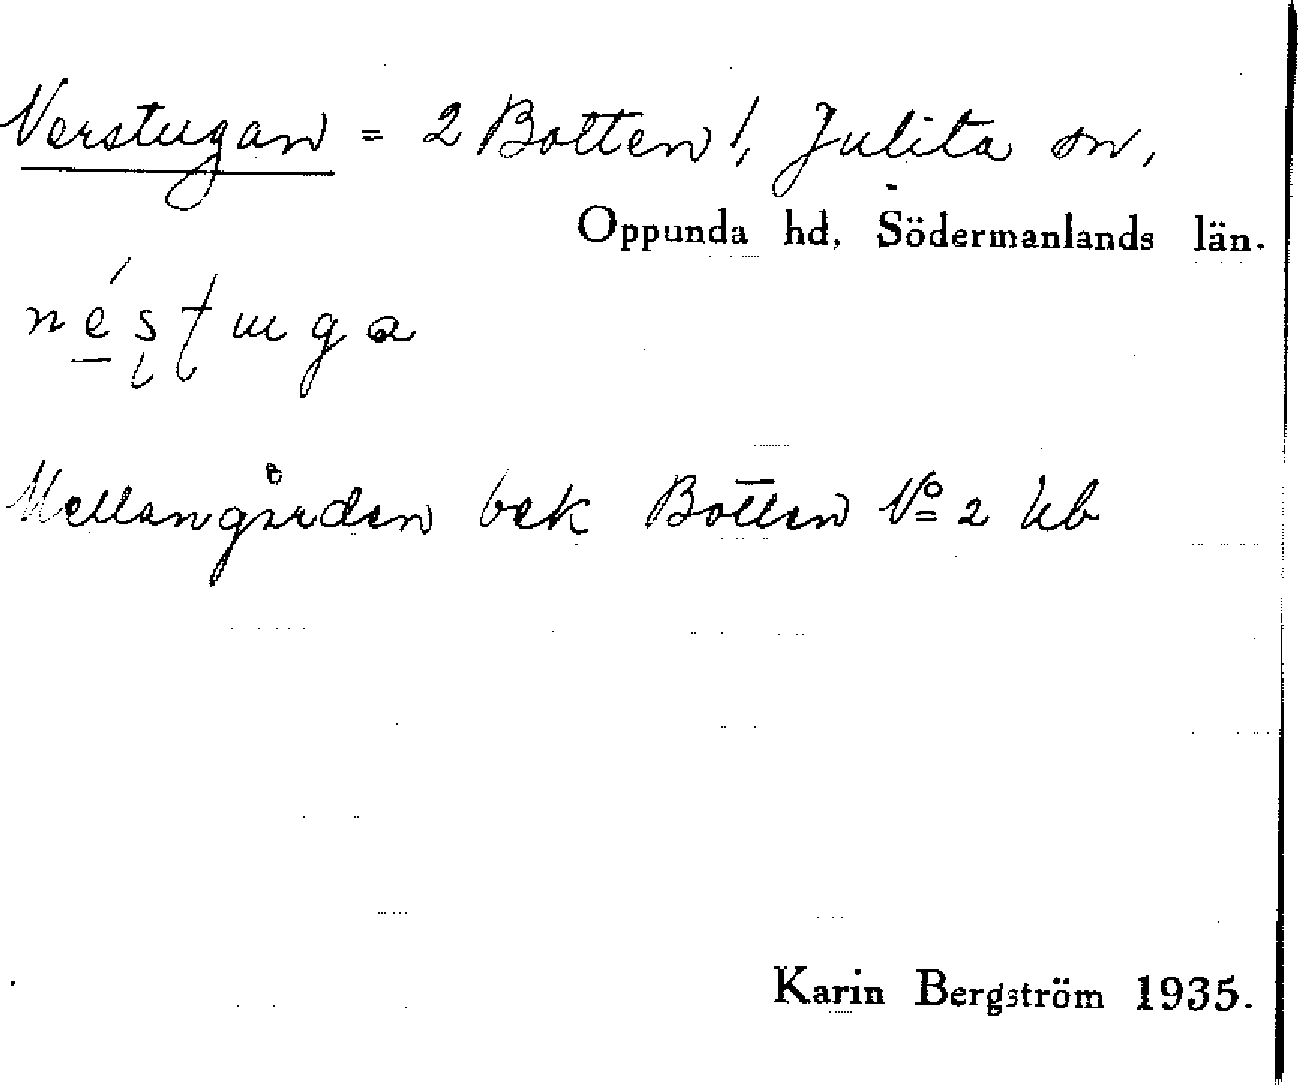 Nerstugan = 2 Botten!, Julita sn,
Oppunda hd, Södermanlands län.
néstuga
Mellangården bek Botten No 2 kb
Karin Bergström 1935.